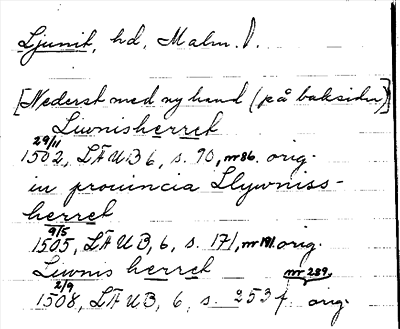 Ljunit, hd, Malm. l.
[Nederst med ny hand (på baksidan)]
Liwnisherret
29/11
1502, LÄUB 6, s. 90, nr 86. orig.
in prouincia Llywniss-
herret
9/5
1505, LÄUB, 6, s. 171, nr 191. orig.
Liwnis herret
2/9 nr 289,
1508, LÄUB, 6, s. 253 f. orig.